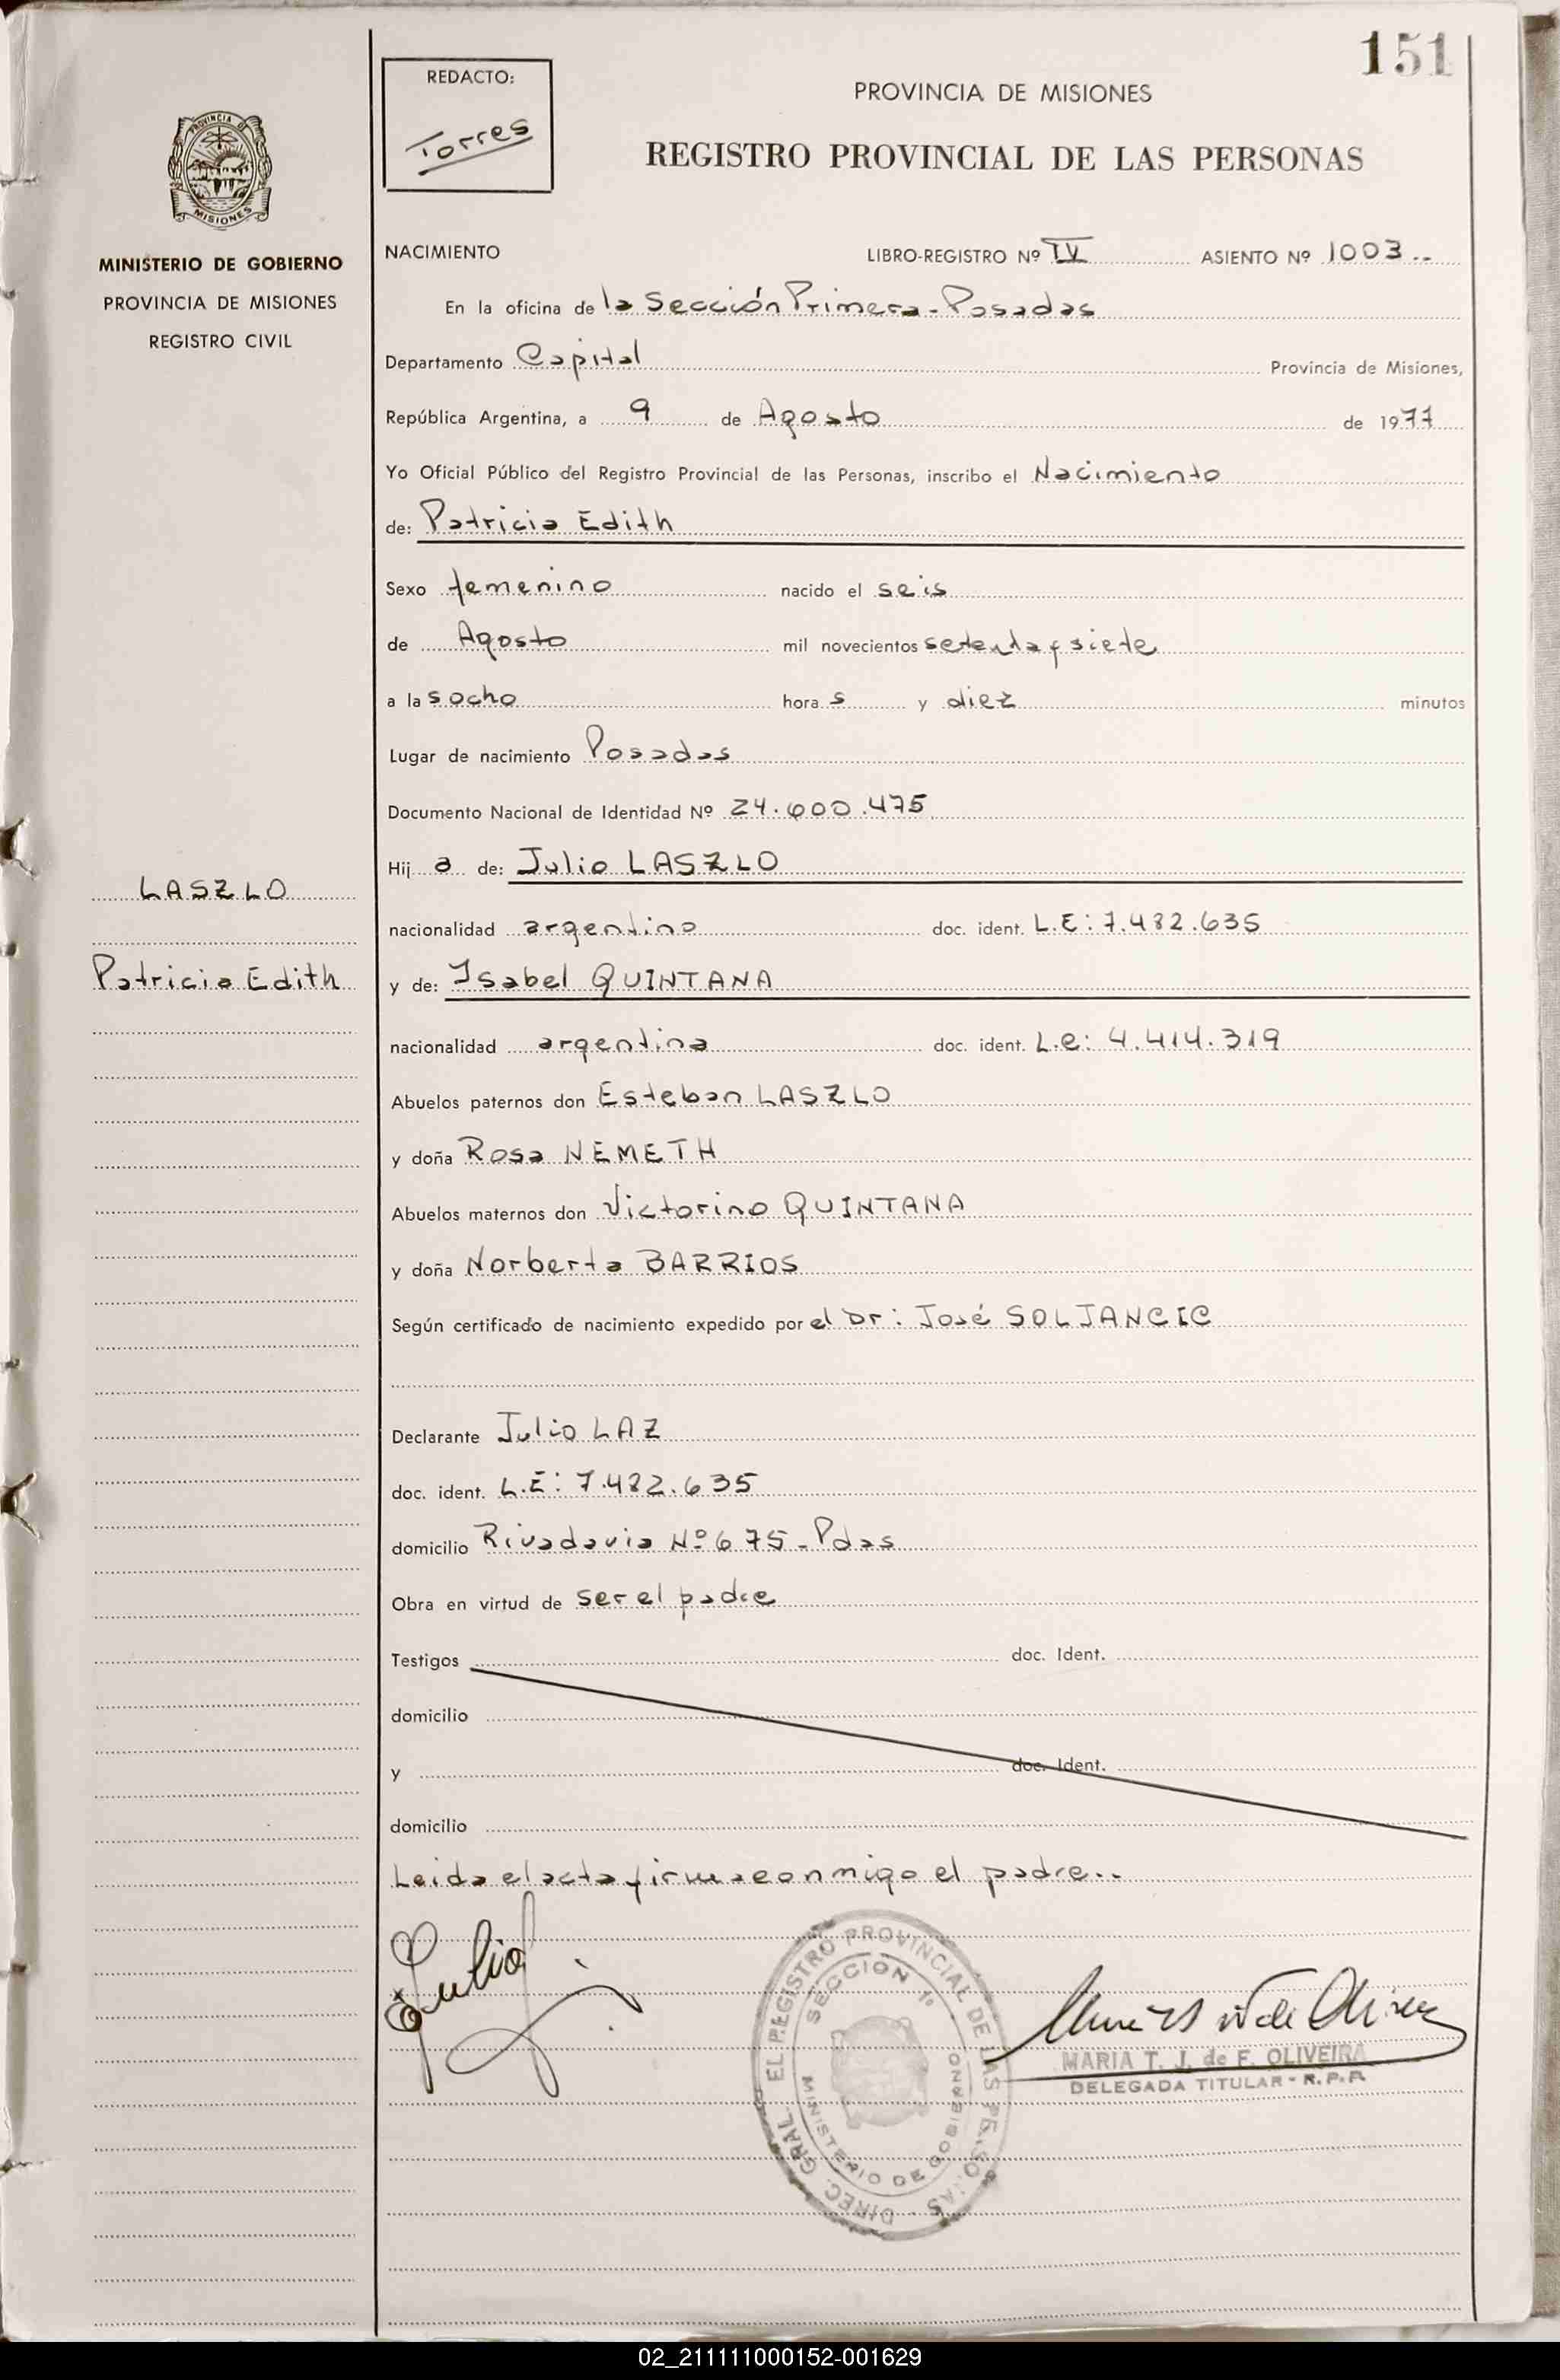 151
REDACTO:
Torres
PROVINCIA DE MISIONES
REGISTRO PROVINCIAL DE LAS PERSONAS
PROVINCIA DE
MISIONES
MINISTERIO DE GOBIERNO
PROVINCIA DE MISIONES
REGISTRO CIVIL
NACIMIENTO LIBRO-REGISTRO Nº IV ASIENTO Nº 1003..
En la oficina de la Sección Primera - Posadas
Departamento Capital Provincia de Misiones,
República Argentina, a 9 de Agosto de 1977
Yo Oficial Público del Registro Provincial de las Personas, inscribo el Nacimiento
de: Patricia Edith
Sexo femenino nacido el seis
de Agosto mil novecientos setenta y siete
a las ocho horas y diez minutos
Lugar de nacimiento Posadas
Documento Nacional de Identidad Nº 24.600.475
Hija de: Julio LASZLO
LASZLO
nacionalidad argentino doc. ident. L.E: 7.482.635
Patricia Edith
y de: Isabel QUINTANA
nacionalidad argentina doc. ident. L.e: 4.414.319
Abuelos paternos don Esteban LASZLO
y doña Rosa NEMETH
Abuelos maternos don Victorino QUINTANA
y doña Norberta BARRIOS
Según certificado de nacimiento expedido por el Dr: José SOLJANCIC
Declarante Julio LAZ
doc. ident. L.E: 7.482.635
domicilio Rivadavia Nº 675 - Pdas
Obra en virtud de ser el padre
Testigos doc. Ident.
domicilio
y doc. Ident.
domicilio
Leida el acta firma conmigo el padre..
Julio
DIREC. GRAL. EL REGISTRO PROVINCIAL DE LAS PERSONAS
SECCION 1º
MINISTERIO DE GOBIERNO
MARIA T. J. de F. OLIVEIRA
DELEGADA TITULAR - R.P.P.
02_211111000152-001629